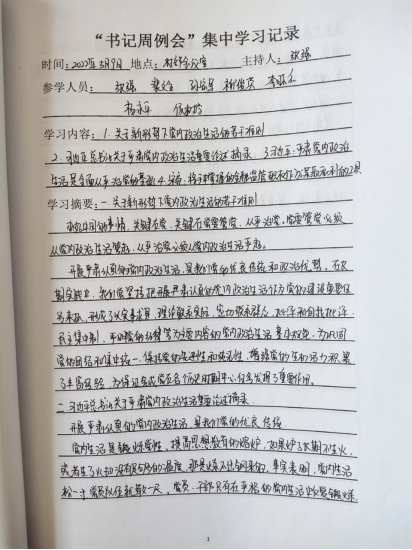 “书记周例会”集中学习记录
时间：2022年3月9日 地点：村部会议室 主持人：张强
参学人员：张强
学习内容：1.关于新形势下党内政治生活的若干准则
2.习近平总书记关于严肃党内政治生活重要论述摘录
学习摘要：一 关于新形势下党内政治生活的若干准则
办好中国的事情，关键在党，关键在党要管党、从严治党。党要管党必须
从党内政治生活管起，从严治党必须从党内政治生活严起。
开展严肃认真的党内政治生活，是我们党的优良传统和政治优势。在长
期实践中，我们党坚持把开展严肃认真的党内政治生活作为党的建设重要任
务来抓，形成了以实事求是、理论联系实际、密切联系群人、批评和自我批评、
民主集中制、严明党的纪律等为主要内容的党内政治生活基本规范，为巩固
党的团结和集中统一、保持党的先进性和纯洁性、增强党的生机活力积累
了丰富经验，为保证完成党在各个历史时期中心任务发挥了重要作用。
二 习近平总书记关于严肃党内政治生活重要论述摘录
开展严肃认真的党内政治生活，是我们党的优良传统
党内生活是锻炼党性、提高思想觉悟的熔炉，如果炉子长期不生火，
或者生了火却没有足够的温度，那是炼不出好钢来的。事实表明，党内生活
松一寸，党员队伍就散一尺。党员、干部只有在严格的党内生活中反复锻炼，
1